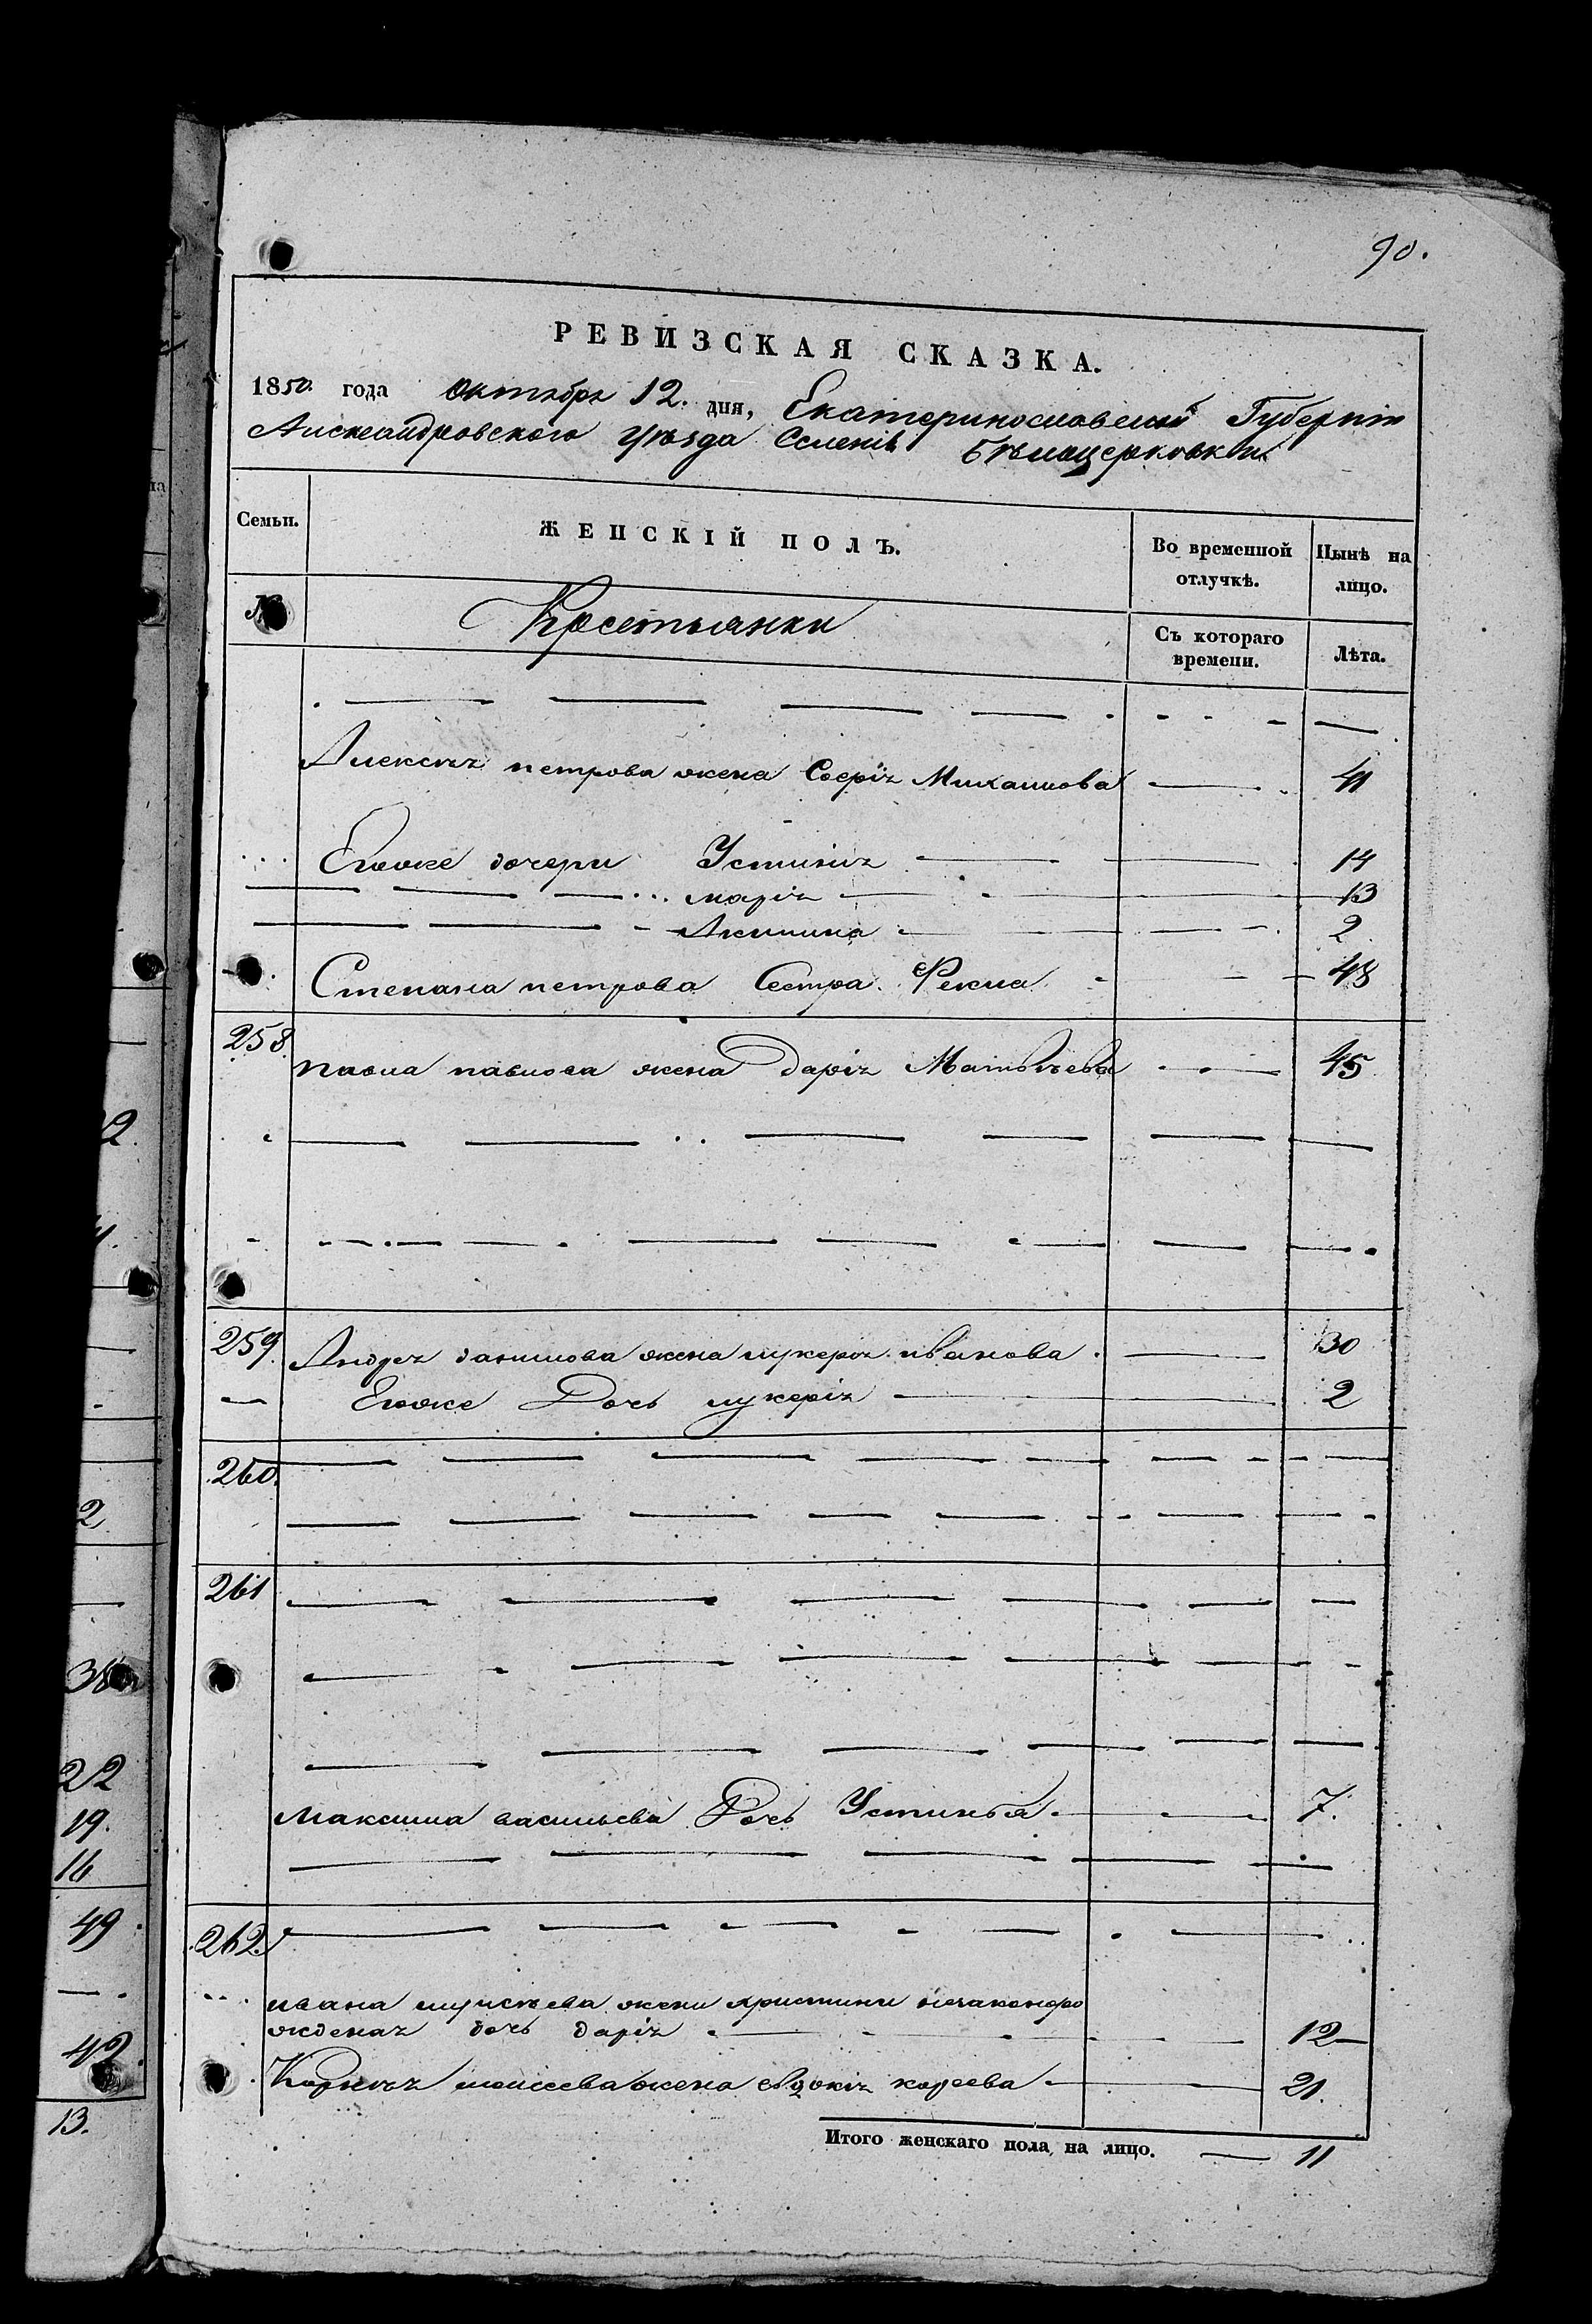 90.
РЕВИЗСКАЯ СКАЗКА.
1850. года Октября 12. дня, Екатеринославской Губерніи
Александровского уѣзда Селенія Бѣлоцерковки
Семьи. ЖЕНСКІЙ ПОЛЪ. Во временной отлучкѣ. Нынѣ на лицо.
№ Крестьянки Съ котораго времени. Лѣта.
Алексѣя петрова жена Софія Михайлова 41
Егоже дочери Устинія 14
марія 13
Акилина 2
Степана петрова Сестра Фекла 48
258. павла павлова жена дарія Матвѣева 45
259. Андрея данилова жена лукерія иванова 30
Егоже Дочь лукерія 2
260.
261
Максима васильева Дочь Устинья 7.
262.
ивана жени христини незаконоро
жденая дочь дарія 12
Корнѣя моисеева жена евдокія 21.
Итого женскаго пола на лицо. 11
2.
2
38
22
19.
16
49
42.
13.